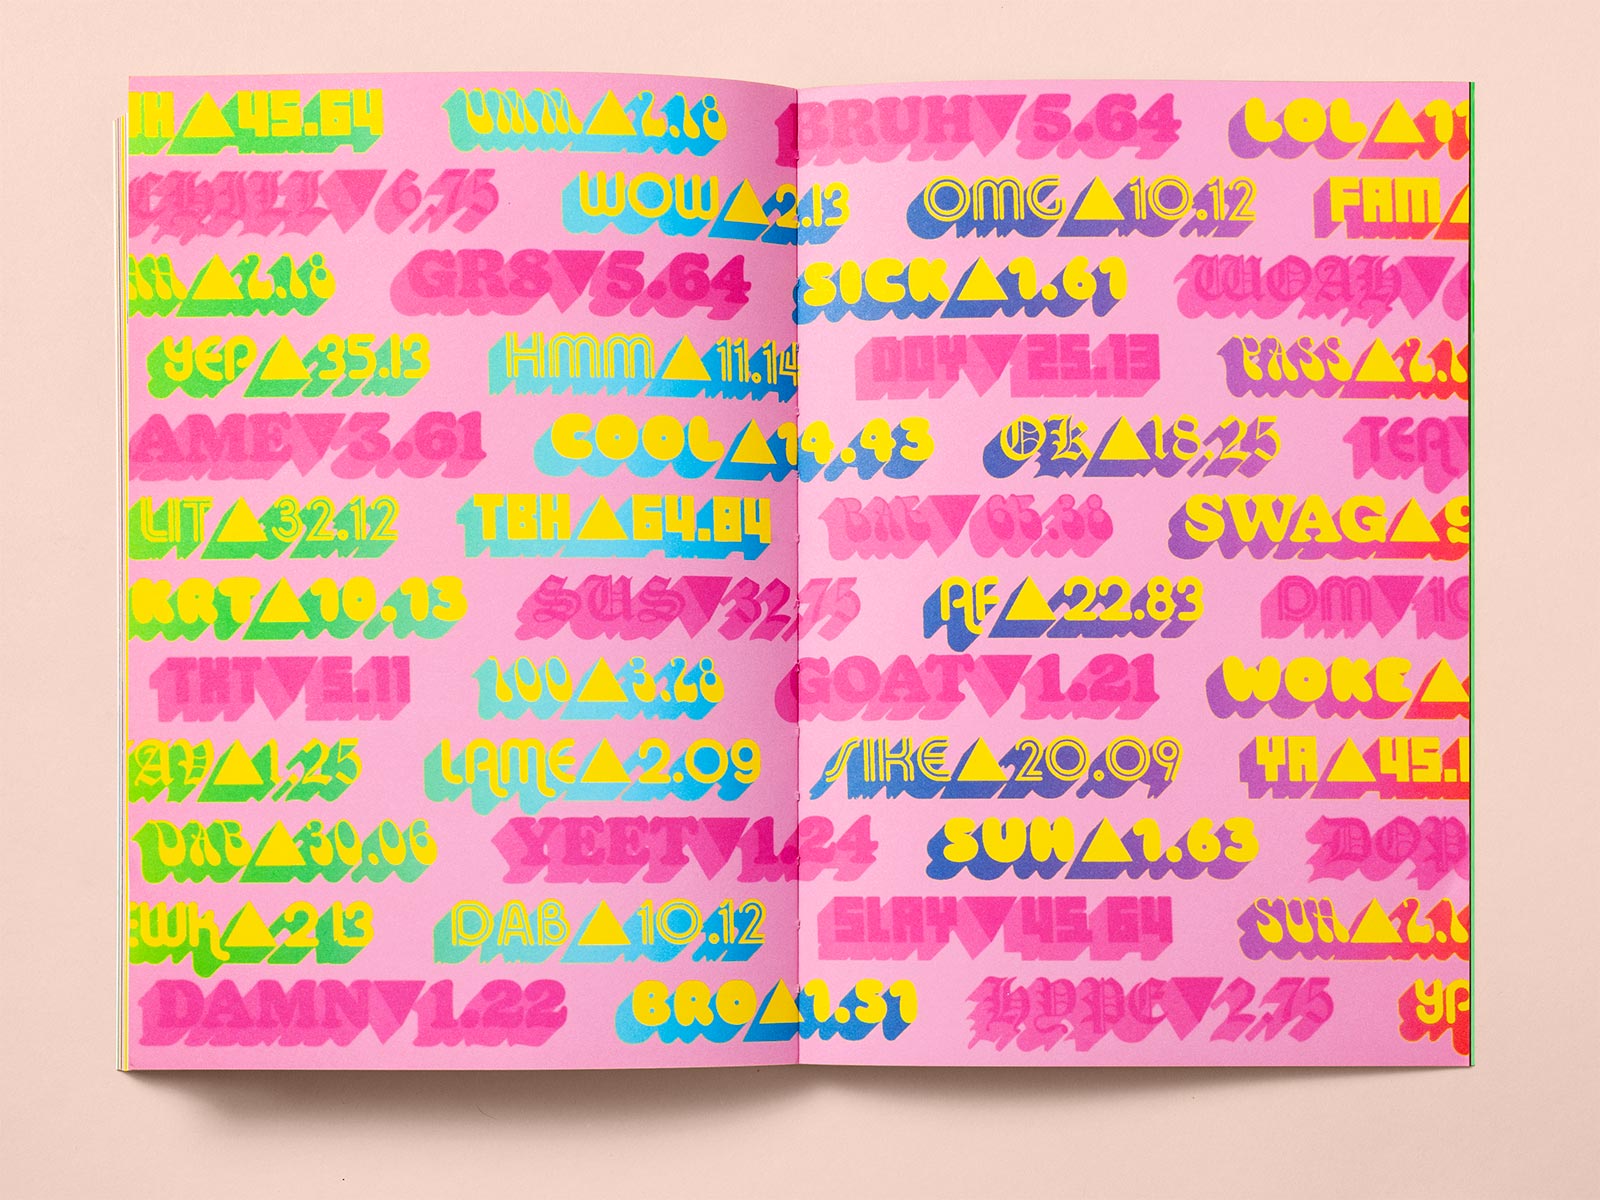 UH▲45.64 UMM▲2.18 BRUH▼5.64 LOL▲11
CHILL▼6.75 WOW▲2.13 OMG▲10.12 FAM▲
▲2.18 GR8▼5.64 SICK▲1.61 WOAH▼
YEP▲35.13 HMM▲11.14 OOY▼25.13 PASS▲2.1
AME▼3.61 COOL▲14.43 OK▲18.25 TEA▼
LIT▲32.12 TBH▲64.84 BAE▼65.38 SWAG▲9
KRT▲10.13 SUS▼32.75 AF▲22.83 DM▼10
THT▼5.11 LOO▲3.28 GOAT▼1.21 WOKE▲
AY▲1.25 LAME▲2.09 SIKE▲20.09 YA▲45.1
DAB▲30.06 YEET▼1.24 SUH▲1.63 DOP
EWK▲2 13 DAB▲10.12 SLAY▼45 64 SUH▲2.1
DAMN▼1.22 BRO▲1.51 HYPE▼2.75 YP